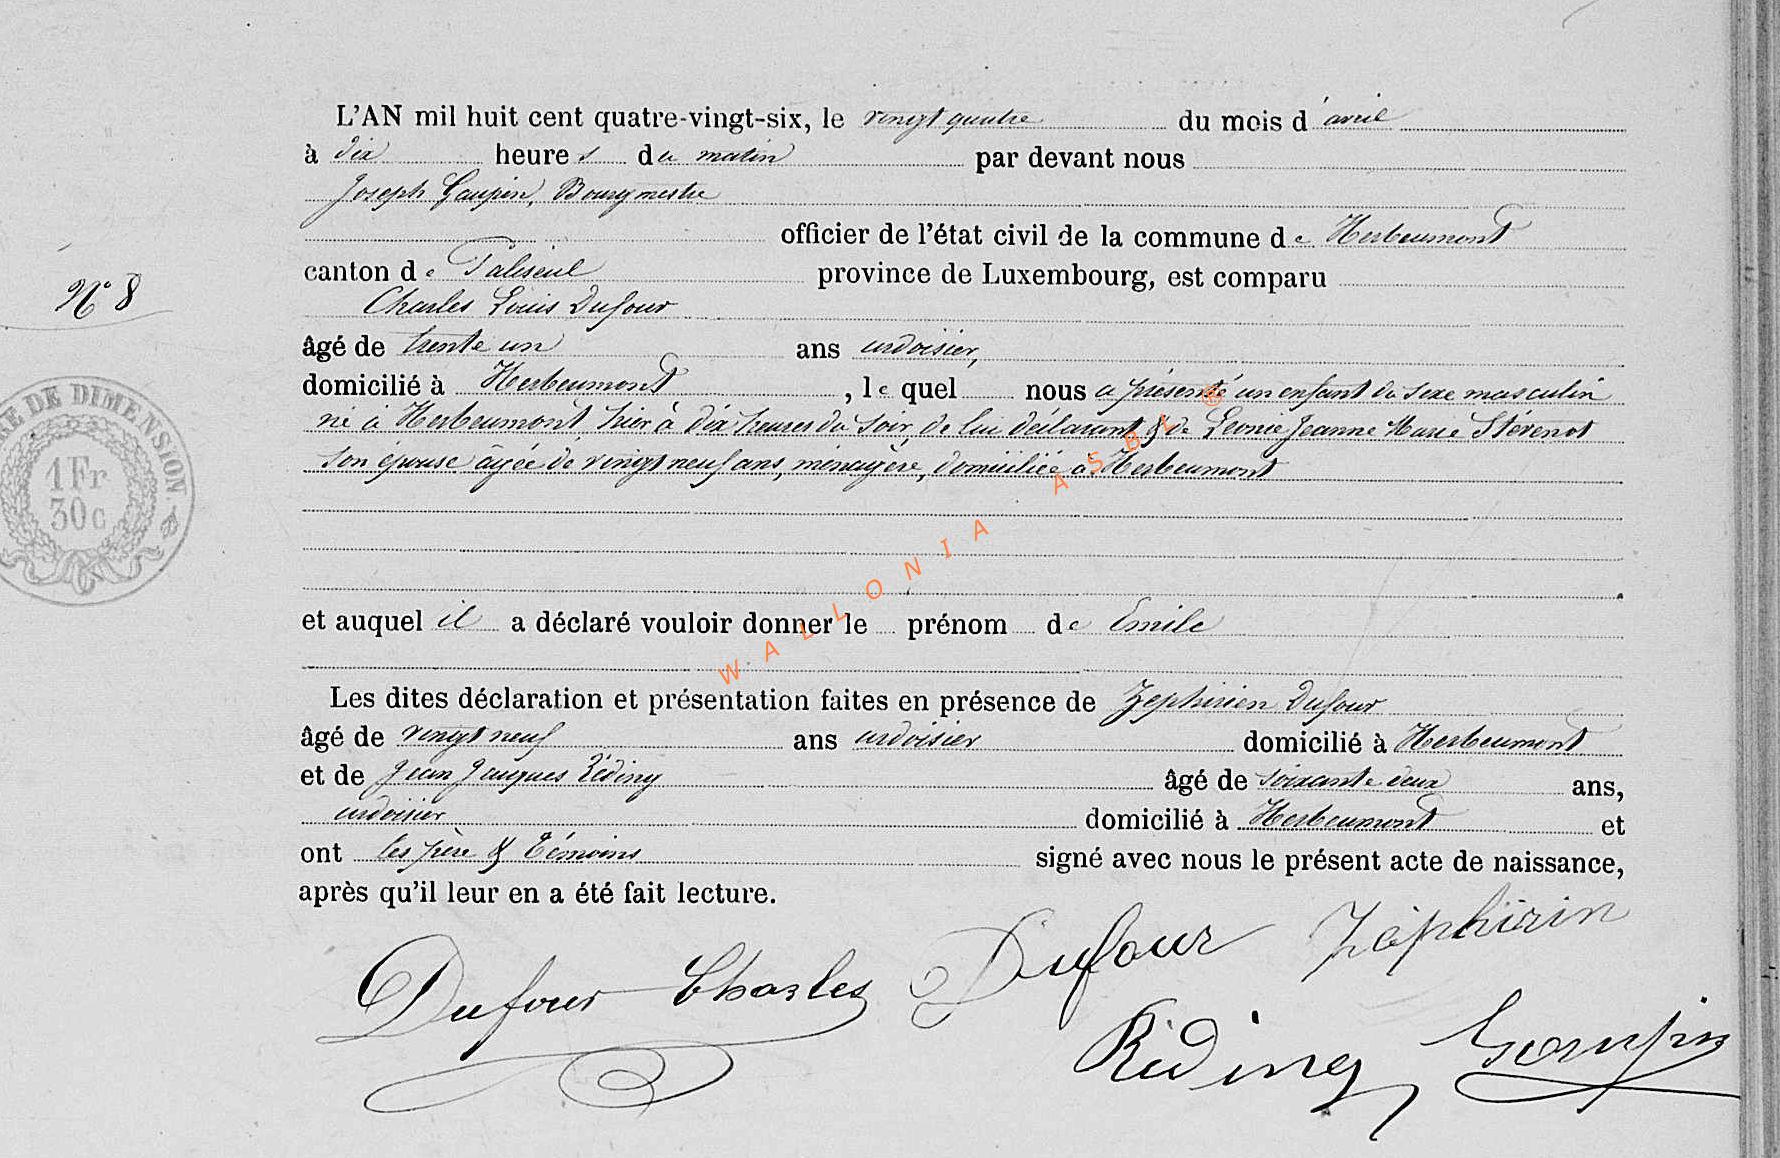 L'AN mil huit cent quatre-vingt-six, le vingt quatre du mois d'avril
à dix heures du matin par devant nous
Joseph Goupin, Bourgmestre
officier de l'état civil de la commune de Herbeumont
canton de Paliseul province de Luxembourg, est comparu
N° 8
Charles Louis Dufour
âgé de trente un ans ardoisier,
domicilié à Herbeumont, lequel nous a présenté un enfant du sexe masculin
né à Herbeumont, hier à dix heures du soir, de lui déclarant & de Léonie Jeanne Marie Stévenot
son épouse âgée de vingt neuf ans, ménagère, domiciliée à Herbeumont
RE DE DIMENSION
1 Fr
30 c
WALLONIA ASBL ©
et auquel il a déclaré vouloir donner le prénom de Emile
Les dites déclaration et présentation faites en présence de Zéphirien Dufour
âgé de vingt neuf ans ardoisier domicilié à Herbeumont
et de Jean Jacques Réding âgé de soixante deux ans,
ardoisier domicilié à Herbeumont et
ont les père & témoins signé avec nous le présent acte de naissance,
après qu'il leur en a été fait lecture.
Dufour Charles Dufour Zéphirin
Réding Goupin